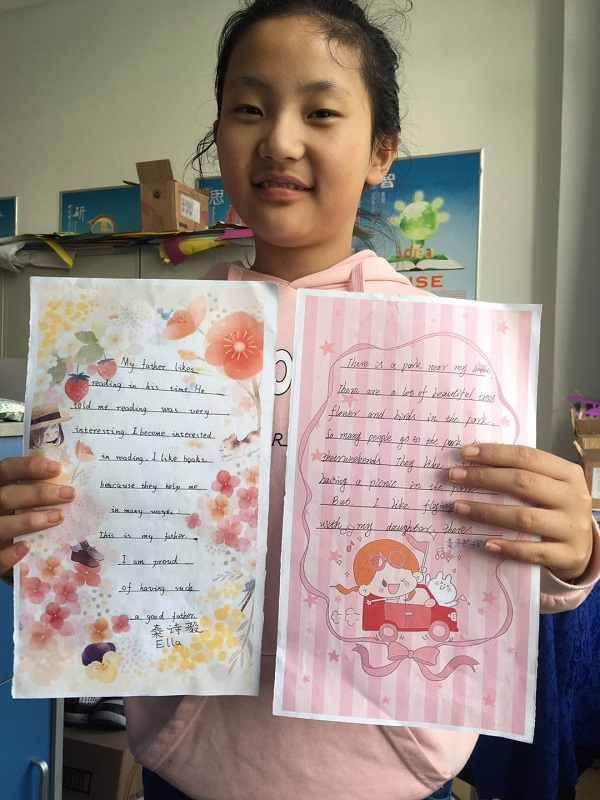 研
思
智
idea
My father likes
reading in his time. He
told me reading was very
interesting. I become interested
in reading. I like books.
beacause they help me
in many ways.
This is my father.
I am proud
of having such
a good father.
秦诗毅
Ella
There is a park near my
There are a lot of beautiful trees
flower and birds in the park.
So many people go to the park
weekends They like
having a picnic in the
But I like flying
with my daughter, there.